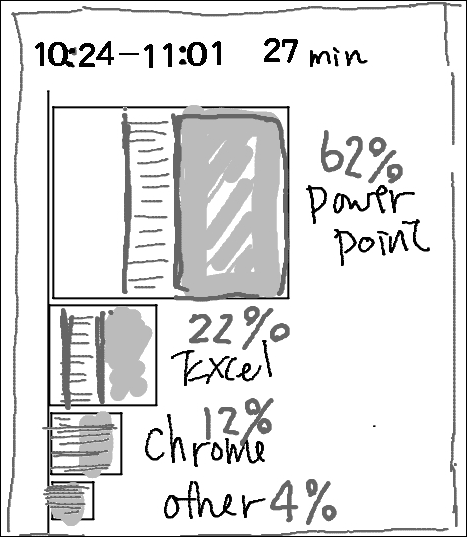 10:24-11:01 27 min
62%
Power
Point
22%
Excel
12%
Chrome
other 4%